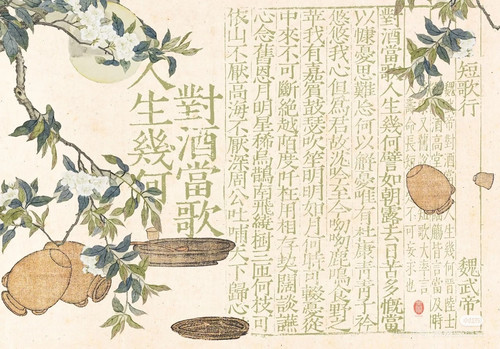 短歌行
魏武帝
對酒當歌人生幾何譬如朝露去日苦多慨當
以慷憂思難忘何以解憂唯有杜康青青子衿
悠悠我心但為君故沈吟至今呦呦鹿鳴食野之
苹我有嘉賓鼓瑟吹笙明明如月何時可掇憂從
中來不可斷絕越陌度阡枉用相存契闊談讌
心念舊恩月明星稀烏鵲南飛繞樹三匝何枝可
依山不厭高海不厭深周公吐哺天下歸心
對酒當歌
人生幾何